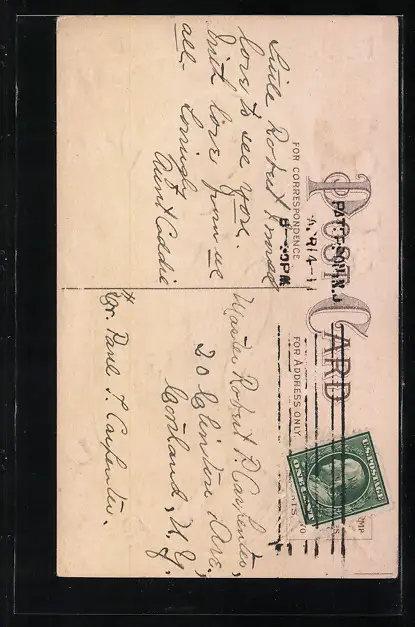 POST CARD
FOR CORRESPONDENCE
FOR ADDRESS ONLY
PATERSON, N.J.
APR 14
30PM
U.S. POSTAGE
ONE CENT
Little Robert I would
love to see you.
With love from us
all - Lovingly
Aunt Addie
Master Robert P. Carpenter,
20 Clinton Ave.,
Cortland, N.Y.
℅ Mr. Paul T. Carpenter.